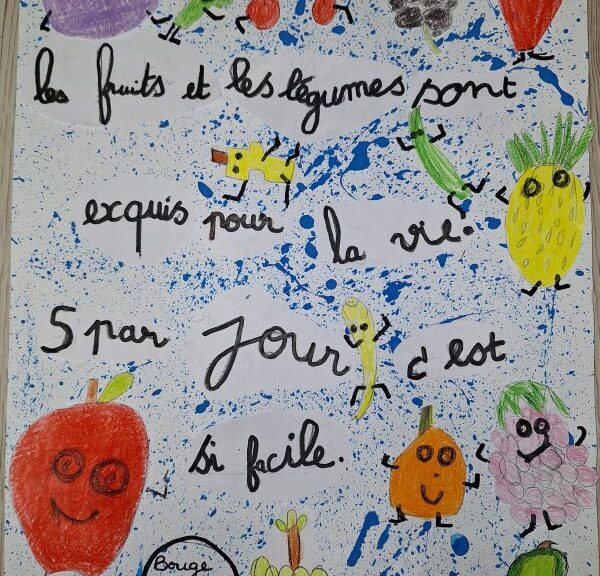 les fruits et les légumes sont
exquis pour la vie.
5 par jour c'est
si facile.
Bouge